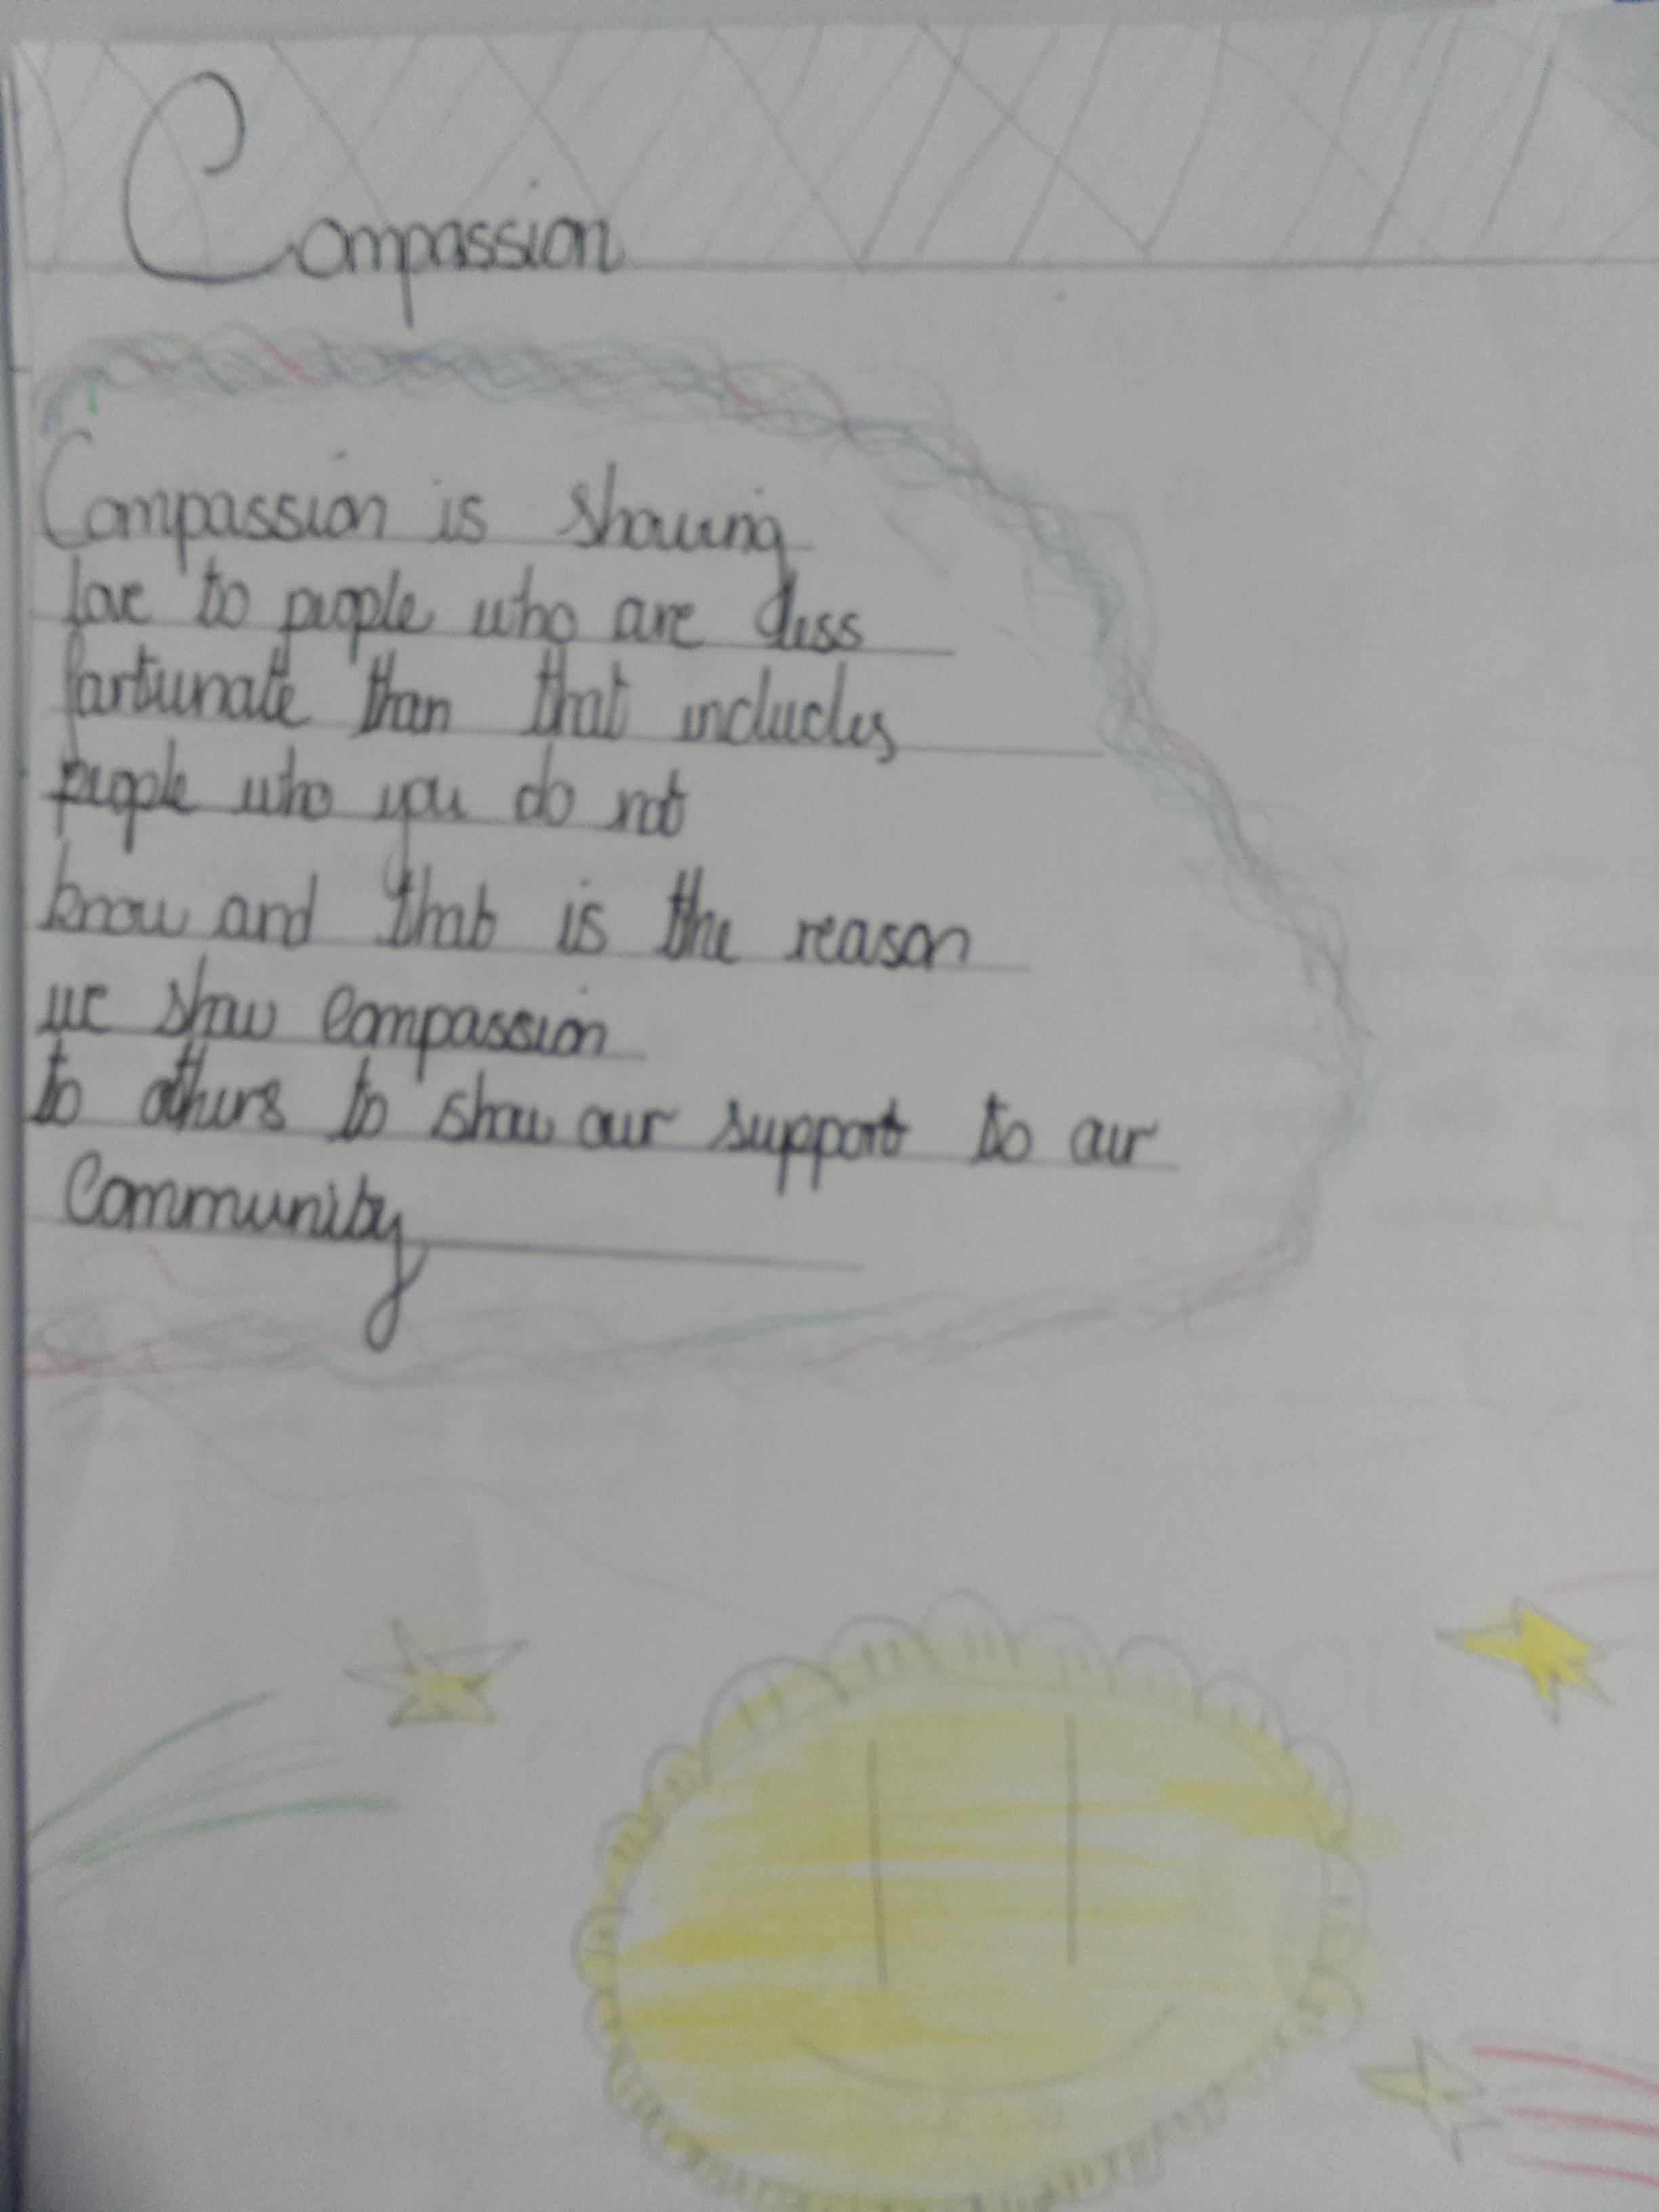 Compassion
Compassion is showing
love to people who are less
fortunate than that includes
people who you do not
know and that is the reason
we show compassion
to others to show our support to our
Community